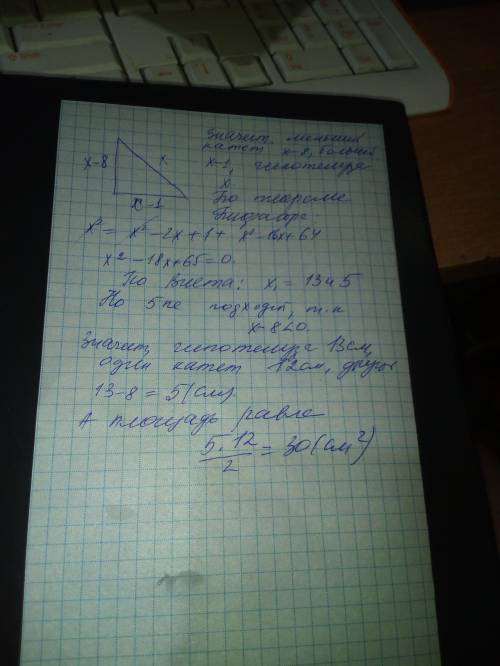 Значит, меньший
катет x-8, больший
x-1, гипотенуза
x
По теореме
Пифагора:
x-8
x
x-1
x² = x² - 2x + 1 + x² - 16x + 64
x² - 18x + 65 = 0.
По Виета: x₁ = 13 и 5
Но 5 не подходит, т.к
x-8<0.
Значит, гипотенуза 13см,
один катет 12см, другой
13-8 = 5(см)
А площадь равна
5·12/2 = 30(см²)